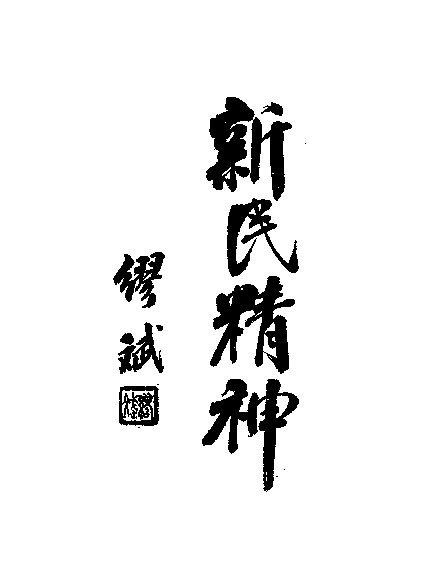 新民精神
繆斌